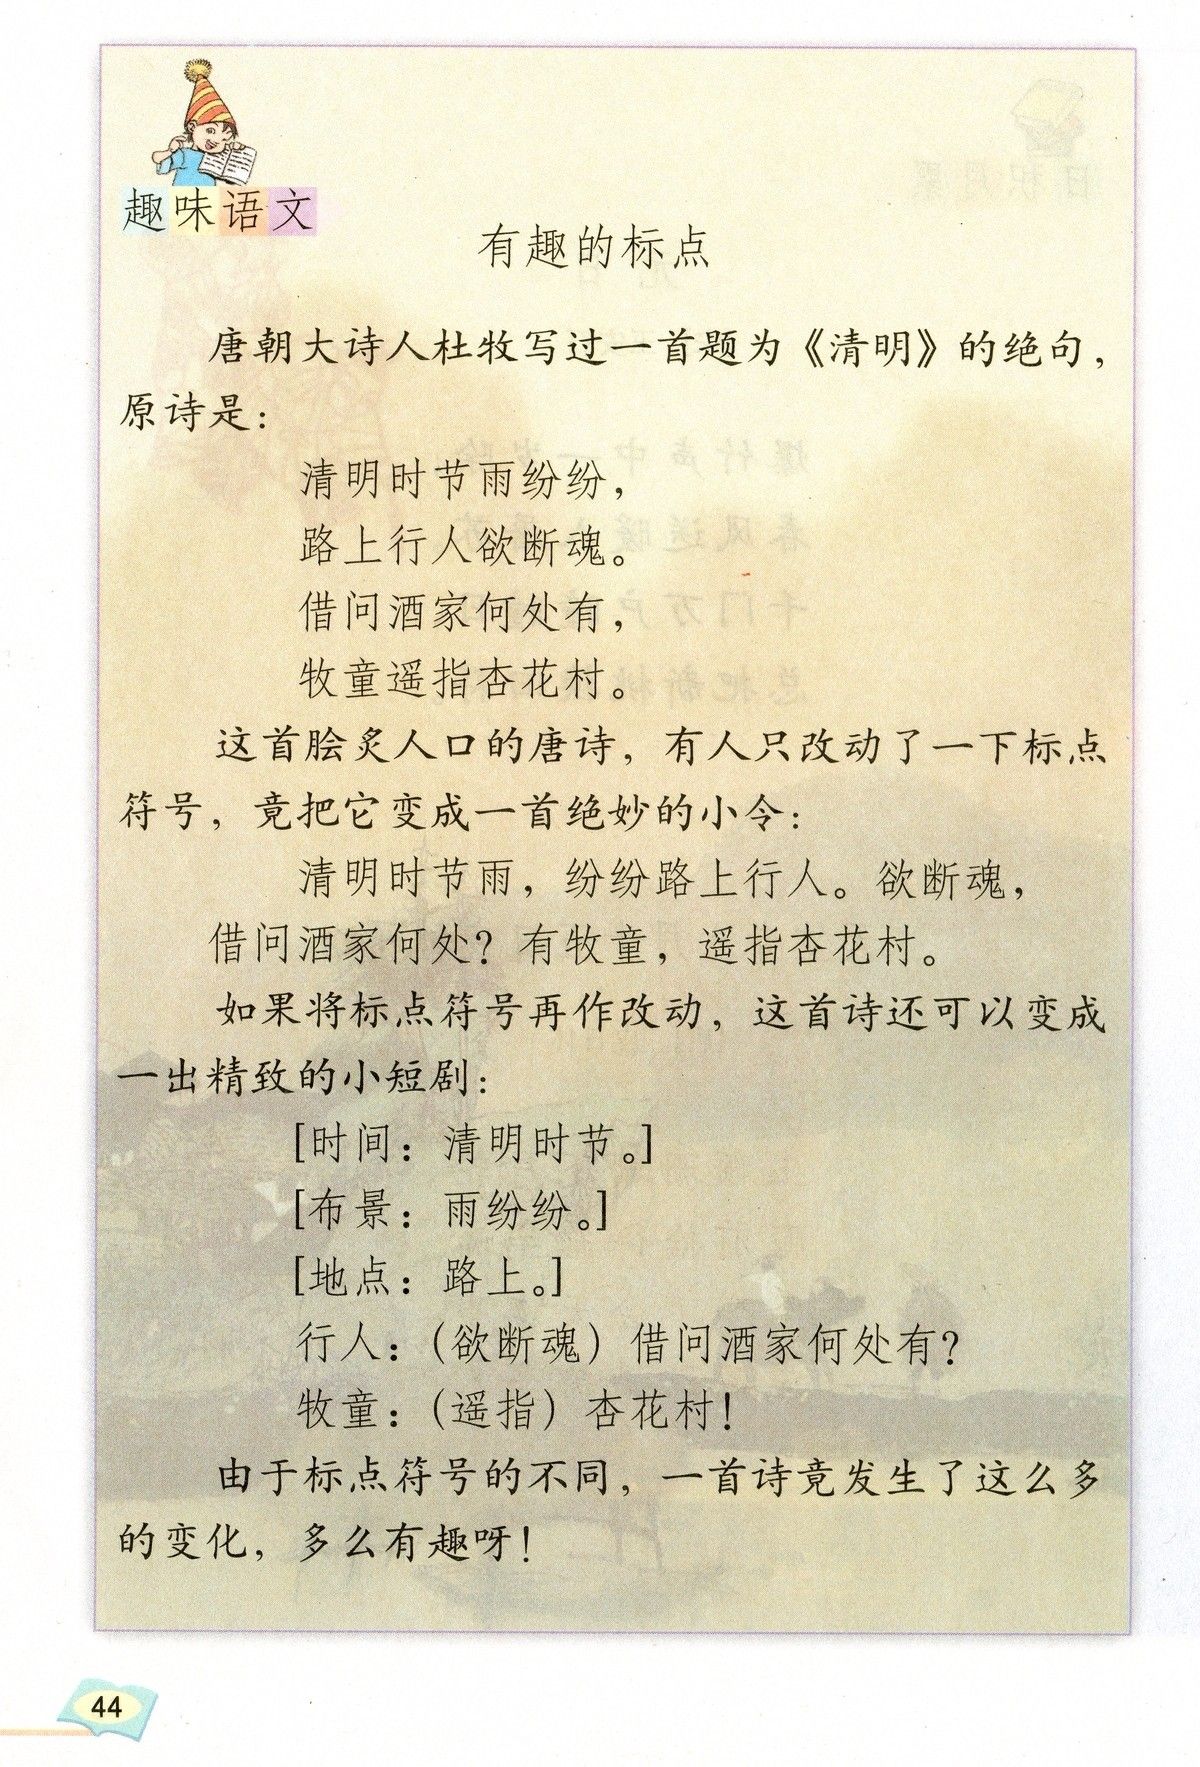 趣味语文
有趣的标点
唐朝大诗人杜牧写过一首题为《清明》的绝句，
原诗是：
清明时节雨纷纷，
路上行人欲断魂。
借问酒家何处有，
牧童遥指杏花村。
这首脍炙人口的唐诗，有人只改动了一下标点
符号，竟把它变成一首绝妙的小令：
清明时节雨，纷纷路上行人。欲断魂，
借问酒家何处？有牧童，遥指杏花村。
如果将标点符号再作改动，这首诗还可以变成
一出精致的小短剧：
[时间：清明时节。]
[布景：雨纷纷。]
[地点：路上。]
行人：（欲断魂）借问酒家何处有？
牧童：（遥指）杏花村！
由于标点符号的不同，一首诗竟发生了这么多
的变化，多么有趣呀！
44